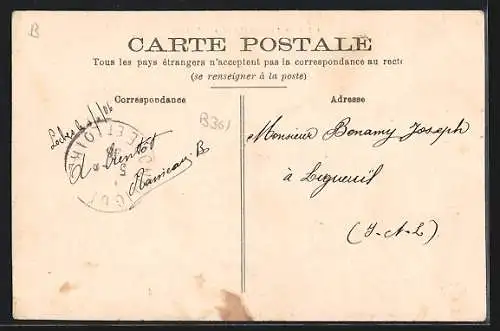 B
CARTE POSTALE
Tous les pays étrangers n'acceptent pas la correspondance au recto
(se renseigner à la poste)
Correspondance
Adresse
B361
A bientôt
Rameau B
Monsieur Bonamy Joseph
à Ligueuil
(I-A-L)